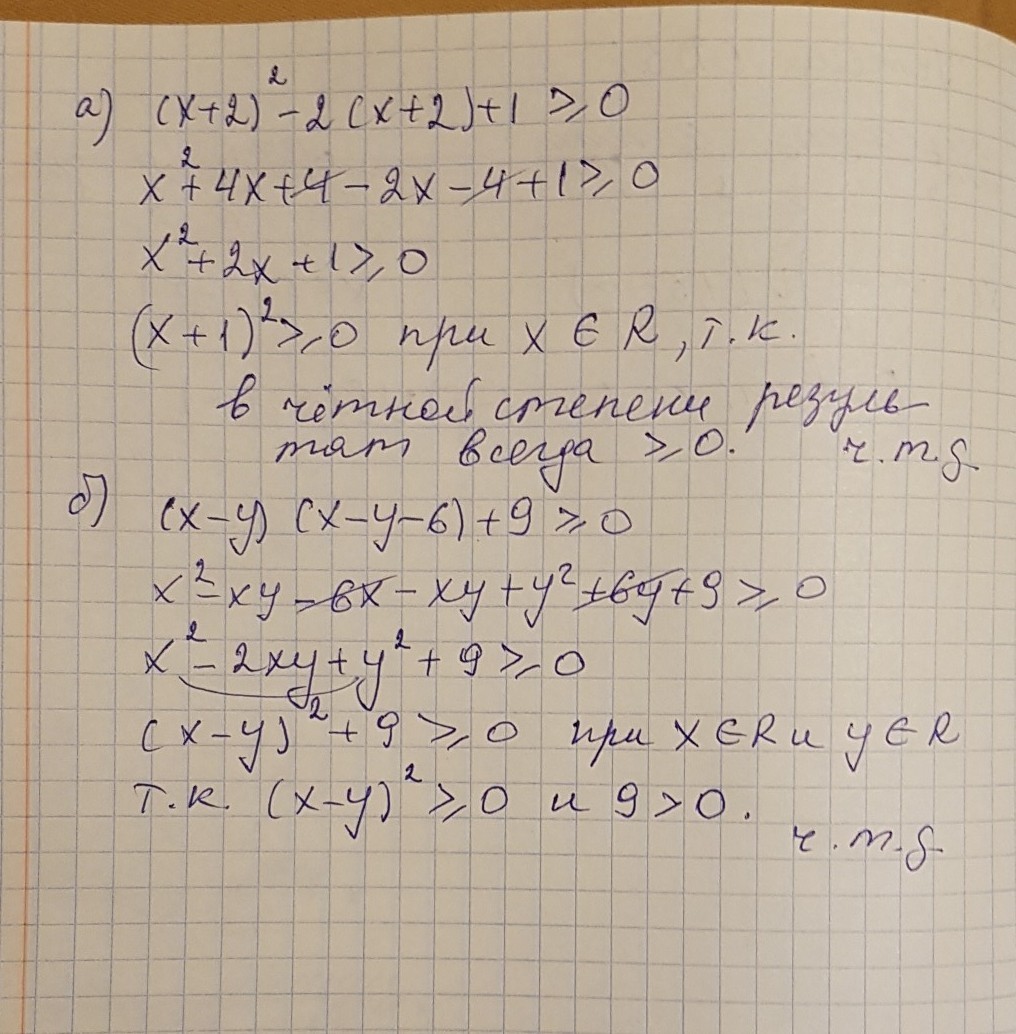 а) (x+2)² - 2(x+2)+1 ⩾ 0
x² + 4x + 4 - 2x - 4 + 1 ⩾ 0
x² + 2x + 1 ⩾ 0
(x+1)² ⩾ 0 при x ∈ R, т.к.
в чётной степени резуль-
тат всегда ⩾ 0. ч.т.д.
б) (x-y) (x-y-6) + 9 ⩾ 0
x² - xy - 6x - xy + y² + 6y + 9 ⩾ 0
x² - 2xy + y² + 9 ⩾ 0
(x-y)² + 9 ⩾ 0 при x ∈ R и y ∈ R
т.к. (x-y)² ⩾ 0 и 9 > 0.
ч.т.д.